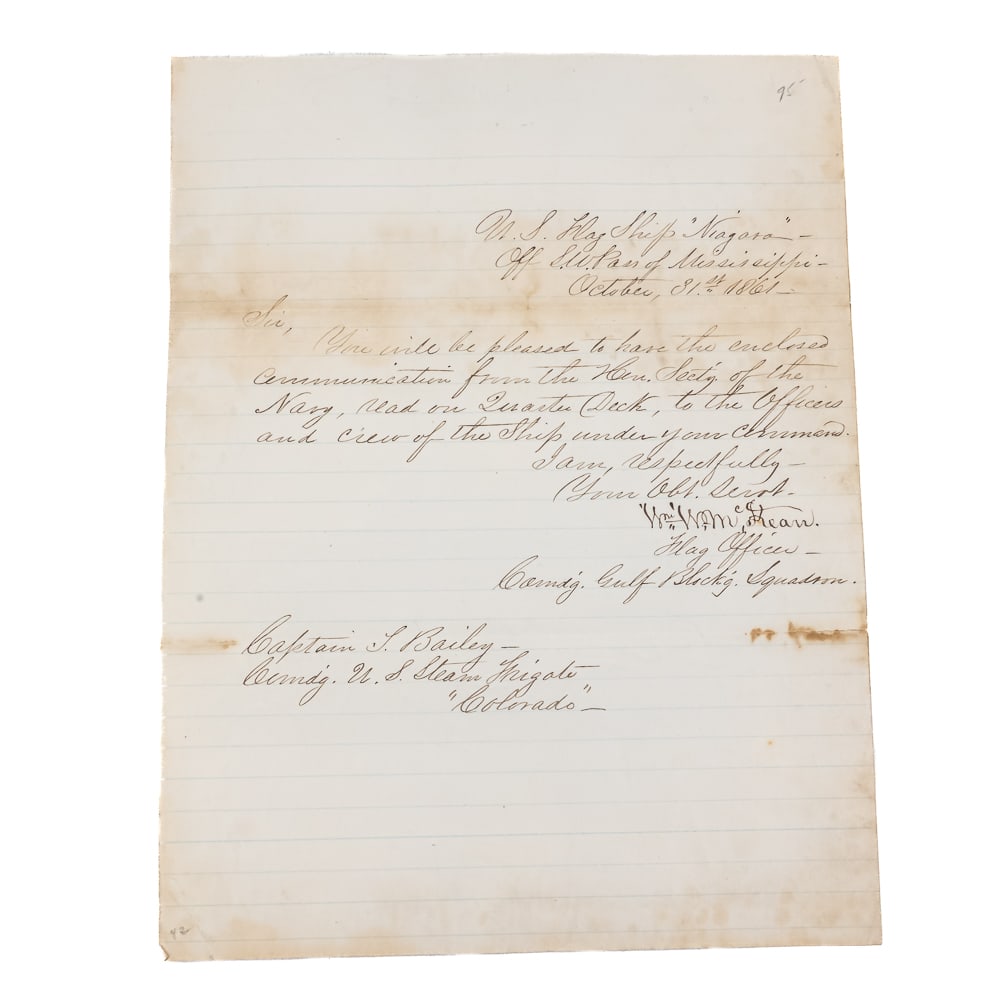 95
U. S. Flag Ship "Niagara" –
Off S.W. Pass of Mississippi –
October, 31.st 1861 –
Sir,
You will be pleased to have the enclosed
communication from the Hon. Secty of the
Navy, read on Quarter Deck, to the Officers
and crew of the Ship under your command.
I am, respectfully –
Your Obt. Servt.
Wm. W. McKean.
Flag Officer –
Comdg. Gulf Blckg. Squadron.
Captain T. Bailey –
Comdg. U. S. Steam Frigate
"Colorado" –
42